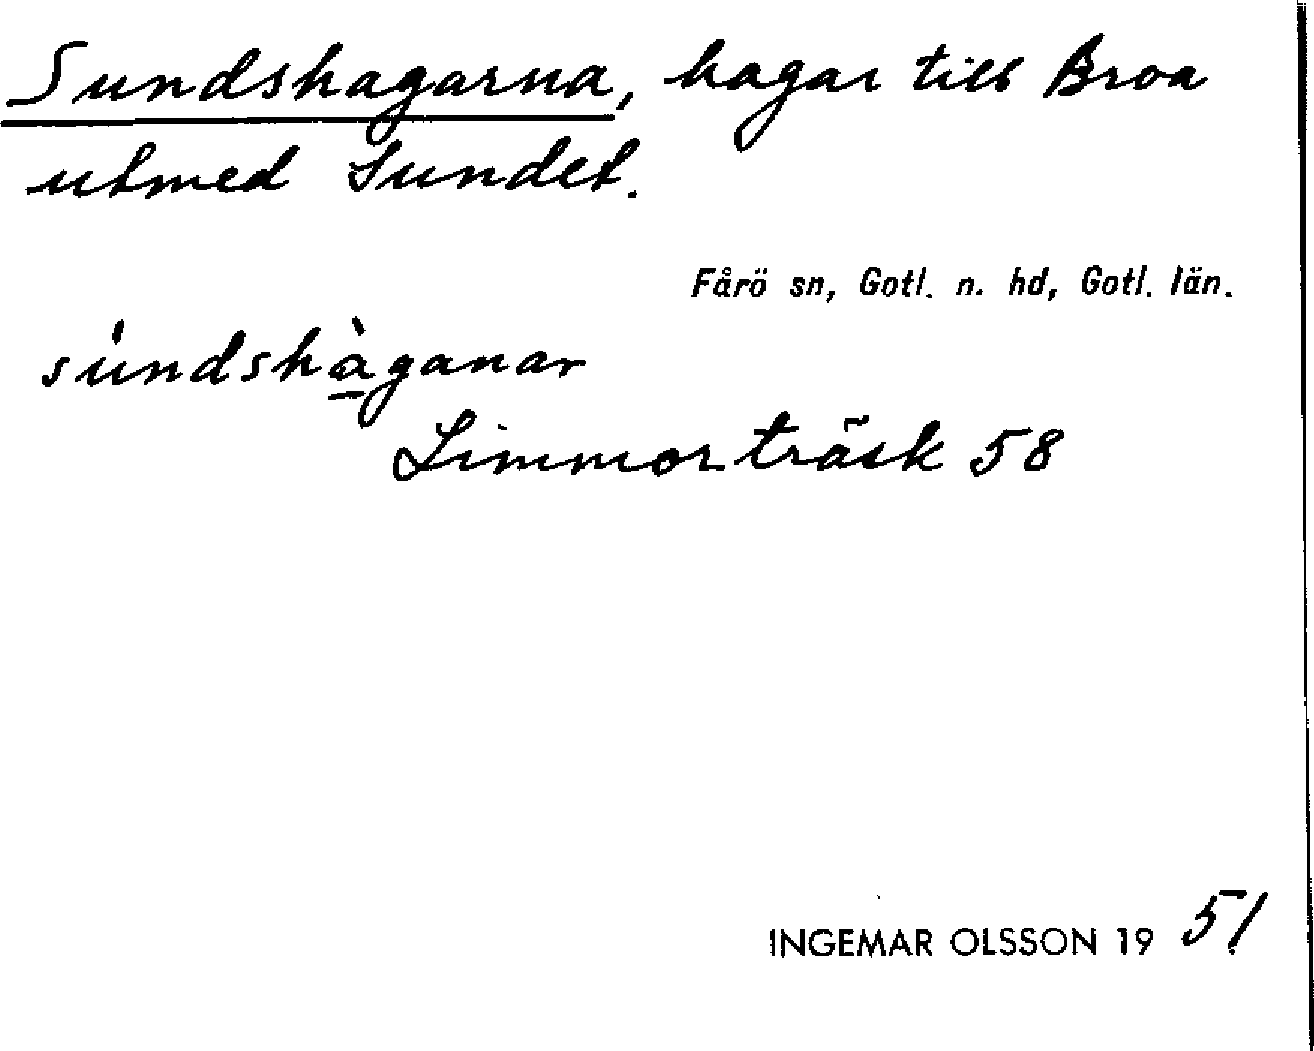 Sundshagarna, hagar till Broa
utmed Sundet.
Fårö sn, Gotl. n. hd, Gotl. län.
su̍ndshà̱ganar
Limmorträsk 58
INGEMAR OLSSON 19 51